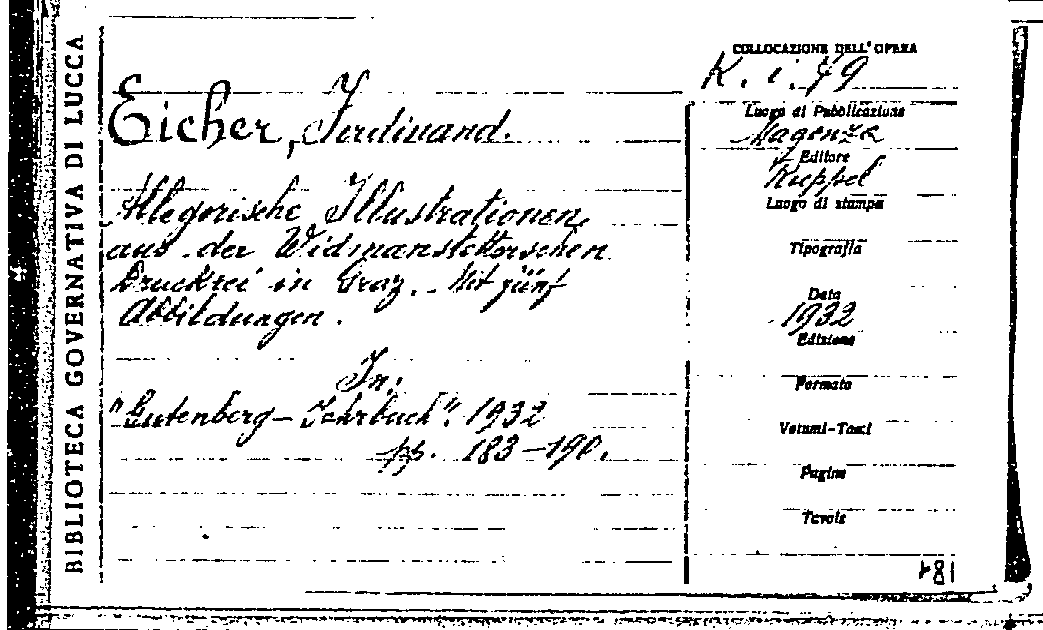 BIBLIOTECA GOVERNATIVA DI LUCCA
Eicher, Ferdinand.
Allegorische Illustrationen
aus der Widmanstetterschen
Druckrei in Graz. - Mit fünf
Abbildungen.
In:
"Gutenberg-Jahrbuch". 1932
pp. 183-190.
COLLOCAZIONE DELL'OPERA
K. i. 49
Luogo di Pubblicazione
Magonza
Editore
Ruppel
Luogo di stampa
Tipografia
Data
1932
Edizione
Formato
Volumi-Tomi
Pagine
Tavole